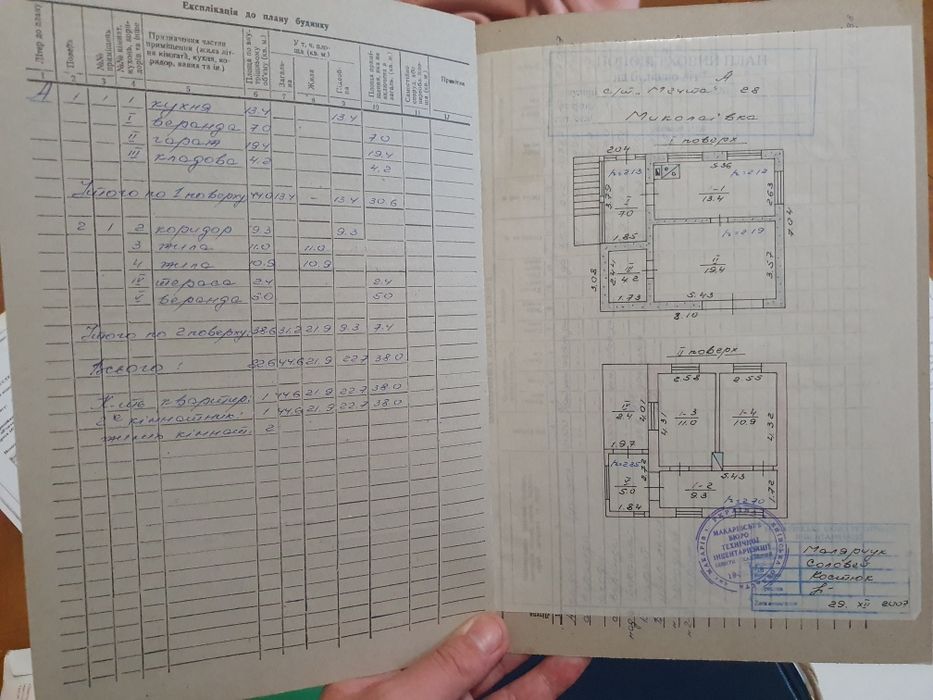 Експлікація до плану будинку
Літер до плану
Поверх
№№ приміщень
№№ кімнат, кухонь, коридорів та інше
Призначення частин приміщення (жила літня кімната, кухня, коридор, ванна та ін.)
Площа по внутрішньому об'єму (кв. м.)
У т. ч. площа (кв. м.)
Загальна
Жила
Підсобна
Примітки
1 2 3 4 5 6 7 8 9 10 11 12
А 1 1 1 кухня 13.4 13.4
I веранда 7.0 7.0
II гараж 19.4 19.4
III кладова 4.2 4.2
Итого по 1 поверху 44.0 13.4 – 13.4 30.6
2 1 2 коридор 9.3 9.3
3 жила 11.0 11.0
4 жила 10.9 10.9
IV тераса 2.4 2.4
V веранда 5.0 5.0
Итого по 2 поверху: 38.6 31.2 21.9 9.3 7.4
Всього: 82.6 44.6 21.9 22.7 38.0
К-ть квартир: 1 44.6 21.9 22.7 38.0
2х кімнатних: 1 44.6 21.9 22.7 38.0
жилих кімнат: 2
А
с/т. "Мечта" 28
Миколаївка
I поверх
2.04
5.36
h=2.13
h=2.12
3.79
I
7.0
1-1
13.4
2.63
7.04
1.85
h=2.19
2.44
III
4.2
II
19.4
3.57
3.08
1.73
5.43
8.10
II поверх
2.58
2.55
IV
2.4
2.01
4.31
1-3
11.0
1-4
10.9
4.32
1.97
h=2.25
2.72
5.43
V
5.0
1-2
9.3
1.72
1.84
h=2.70
УКРАЇНА
КИЇВСЬКА ОБЛАСТЬ
МАКАРІВСЬКЕ
БЮРО
ТЕХНІЧНОЇ
ІНВЕНТАРИЗАЦІЇ
Малярчук
Соловей
Костюк
29. XII 2007